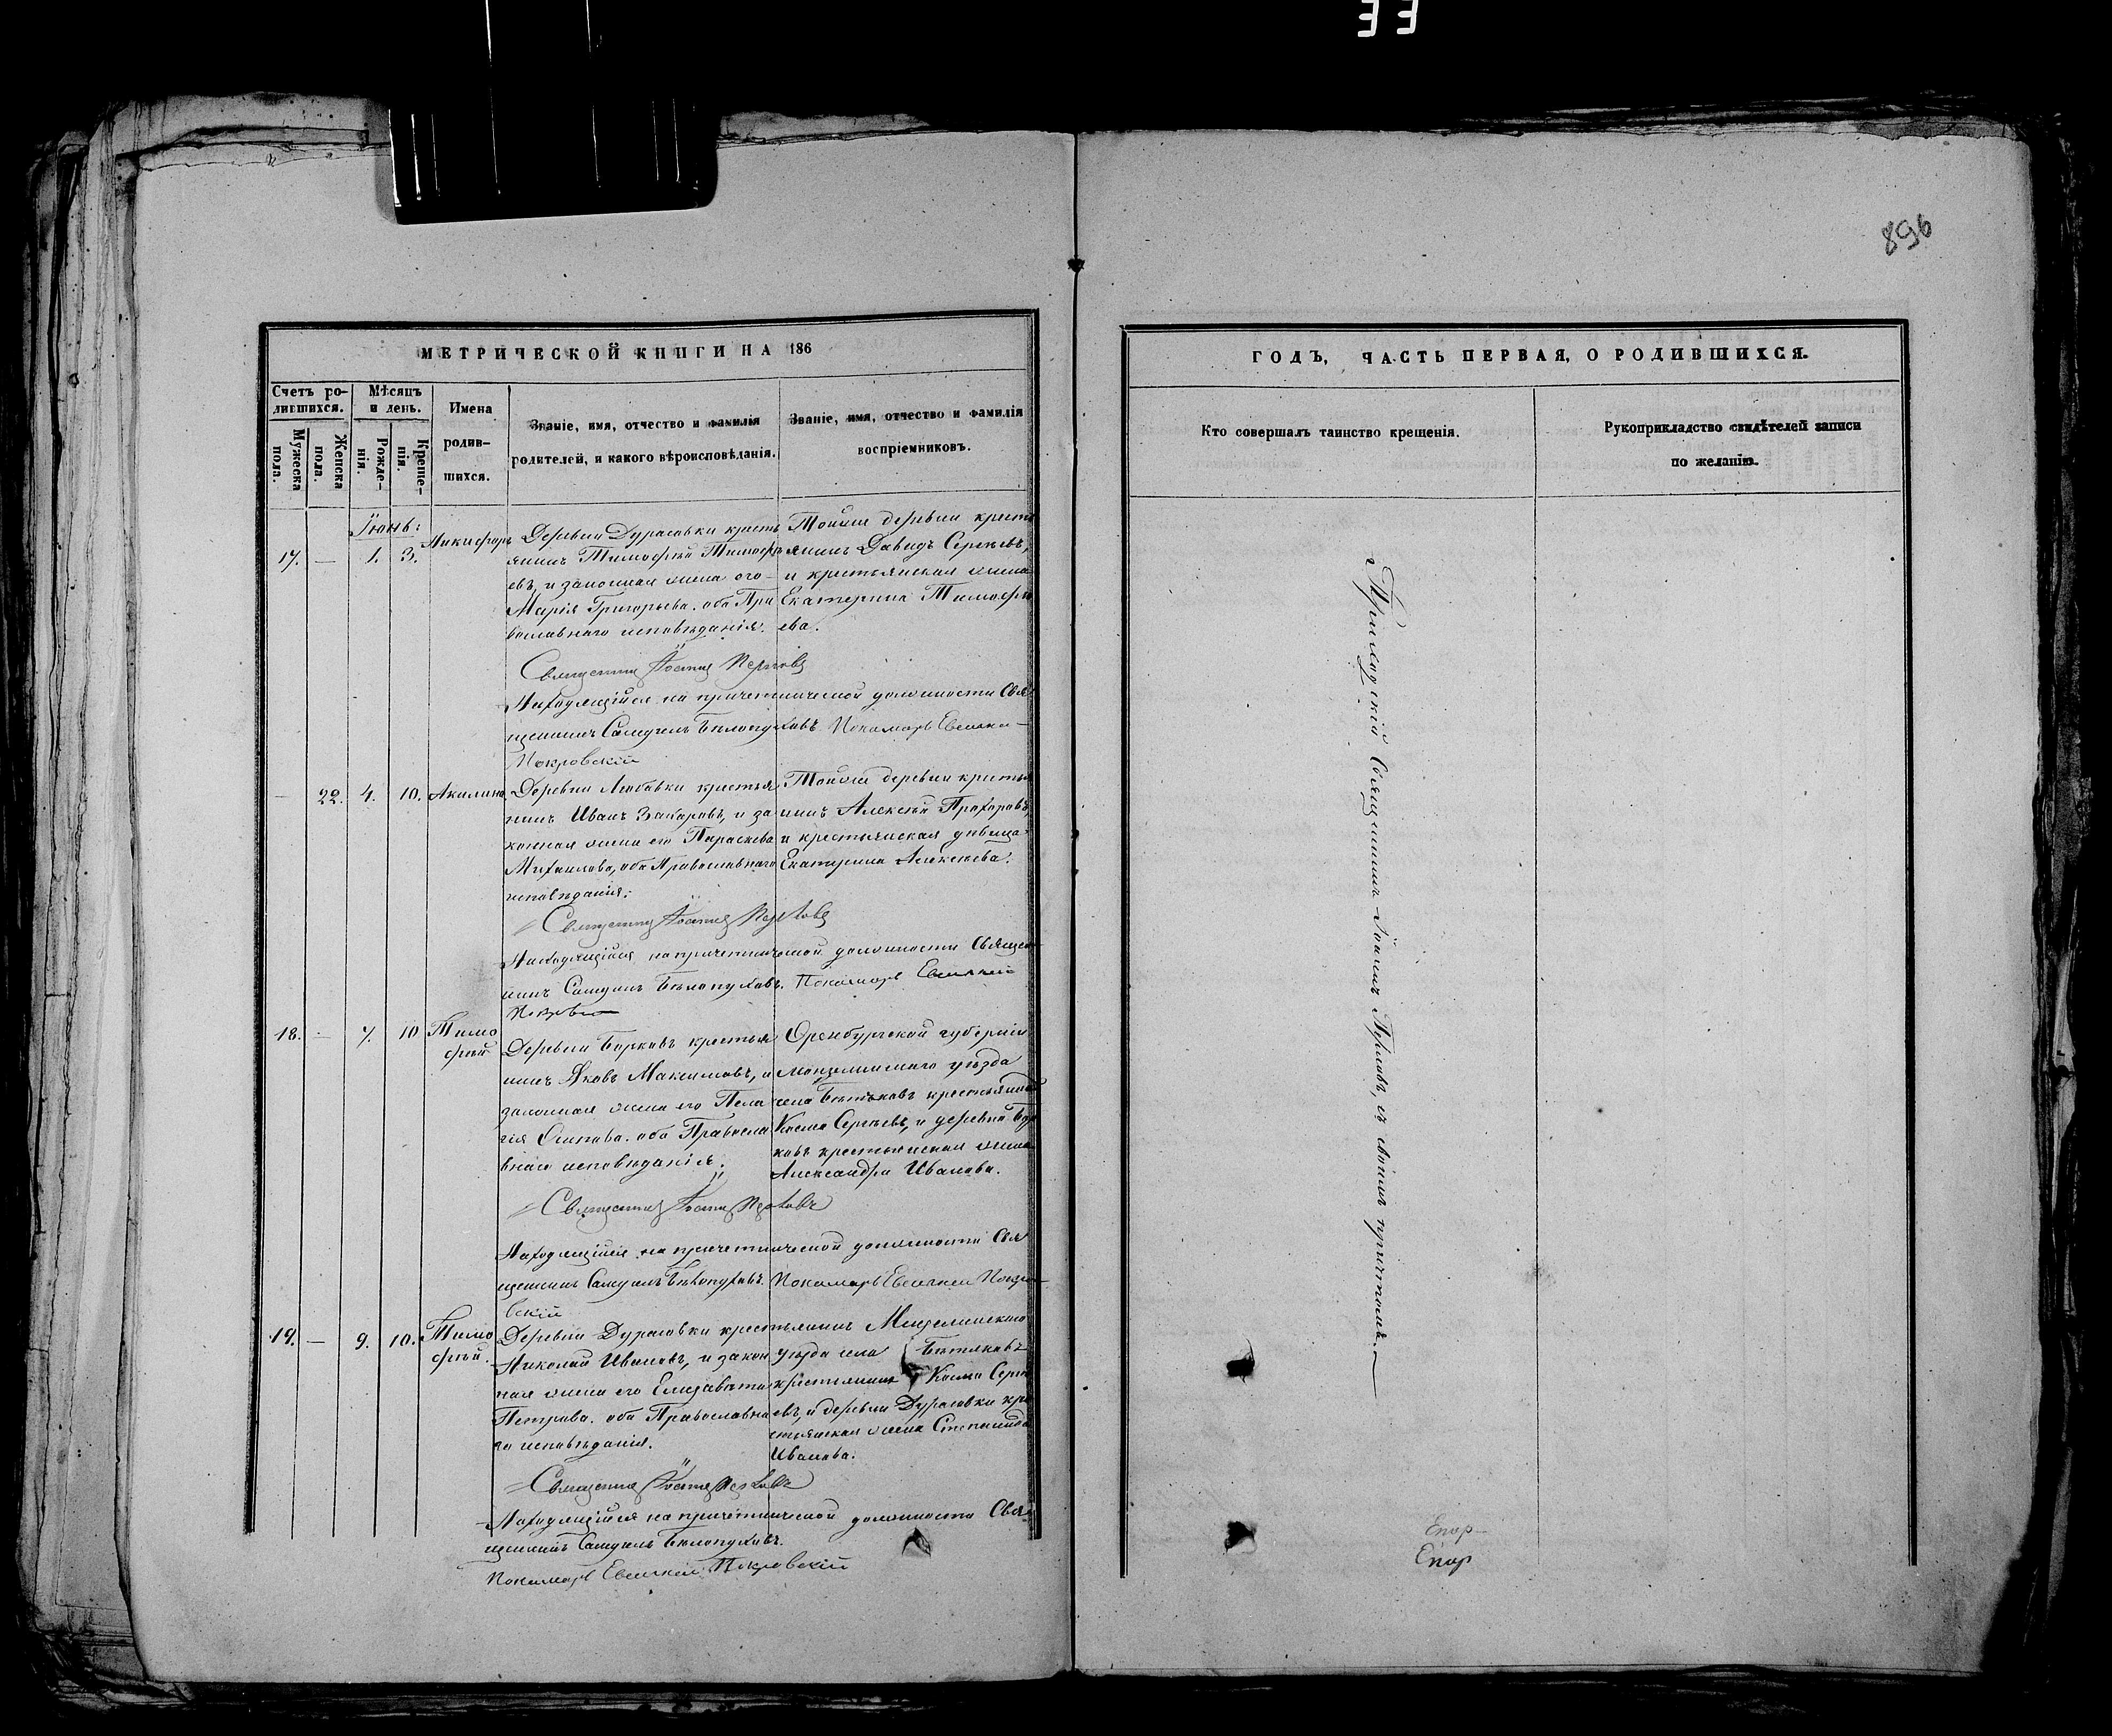 896
МЕТРИЧЕСКОЙ КНИГИ НА 186
ГОДЪ, ЧАСТЬ ПЕРВАЯ, О РОДИВШИХСЯ.
Счетъ ро-
дившихся.
Мужеска
пола.
Женска
пола.
Мѣсяцъ
и день.
Рожде-
нія.
Креще-
нія.
Имена
родив-
шихся.
Званіе, имя, отчество и фамилія
родителей, и какого вѣроисповѣданія.
Званіе, имя, отчество и фамилія
воспріемниковъ.
Кто совершалъ таинство крещенія.
Рукоприкладство свидѣтелей записи
по желанію.
Іюнь:
17. — 1. 3. Никифоръ
Деревни Дурасовки кресть
янинъ Тимофей Тимофе
евъ, и законная жена его
Марія Григорьева. оба Пра
вославнаго исповѣданія.
Тойже деревни кресть
янинъ Давидъ Сергѣевъ,
и крестьянская жена
Екатерина Тимофе
ева.
Священникъ Іоаннъ
Находящійся на причетнической должности Свя
щенникъ Самуилъ Бѣлопуховъ Пономарь Евсигней
Покровскій
— 22. 4. 10. Акилина
Деревни Любавки крестья
нинъ Иванъ Захаровъ, и за
конная жена его Параскева
Михаилова, оба Православнаго
исповѣданія.
Тойже деревни крестья
нинъ Алексѣй Прохоровъ,
и крестьянская дѣвица
Екатерина Алексѣева.
Священникъ Іоаннъ
Находящійся на причетнической должности Священ
никъ Самуилъ Бѣлопуховъ. Пономарь Евсигней
18. — 7. 10 Тимо
фей
Деревни крестья
нинъ Яковъ Максимовъ, и
законная жена его Пела
гія Осипова. оба Правосла
внаго исповѣданія.
Оренбургской губерніи
Мензелинскаго уѣзда
села крестьянинъ
Косма Сергѣевъ, и деревни
крестьянская жена
Александра Иванова.
Священникъ Іоаннъ
Находящійся на причетнической должности Свя
щенникъ Самуилъ Бѣлопуховъ. Пономарь Евсигней Покро
вскій
19. — 9. 10. Тимо
фей.
Деревни Дурасовки крестьянинъ
Николай Ивановъ, и закон
ная жена его Елизавета
Петрова. оба Православна
го исповѣданія.
Мензелинскаго
уѣзда села
крестьянинъ Косма Сергѣ
евъ, и деревни Дурасовки кре
стьянская жена Степанида
Иванова.
Священникъ Іоаннъ
Находящійся на причетнической должности Свя
щенникъ Самуилъ Бѣлопуховъ.
Пономарь Евсигней Покровскій
Приходскій Священникъ Іоаннъ съ своимъ причтомъ.